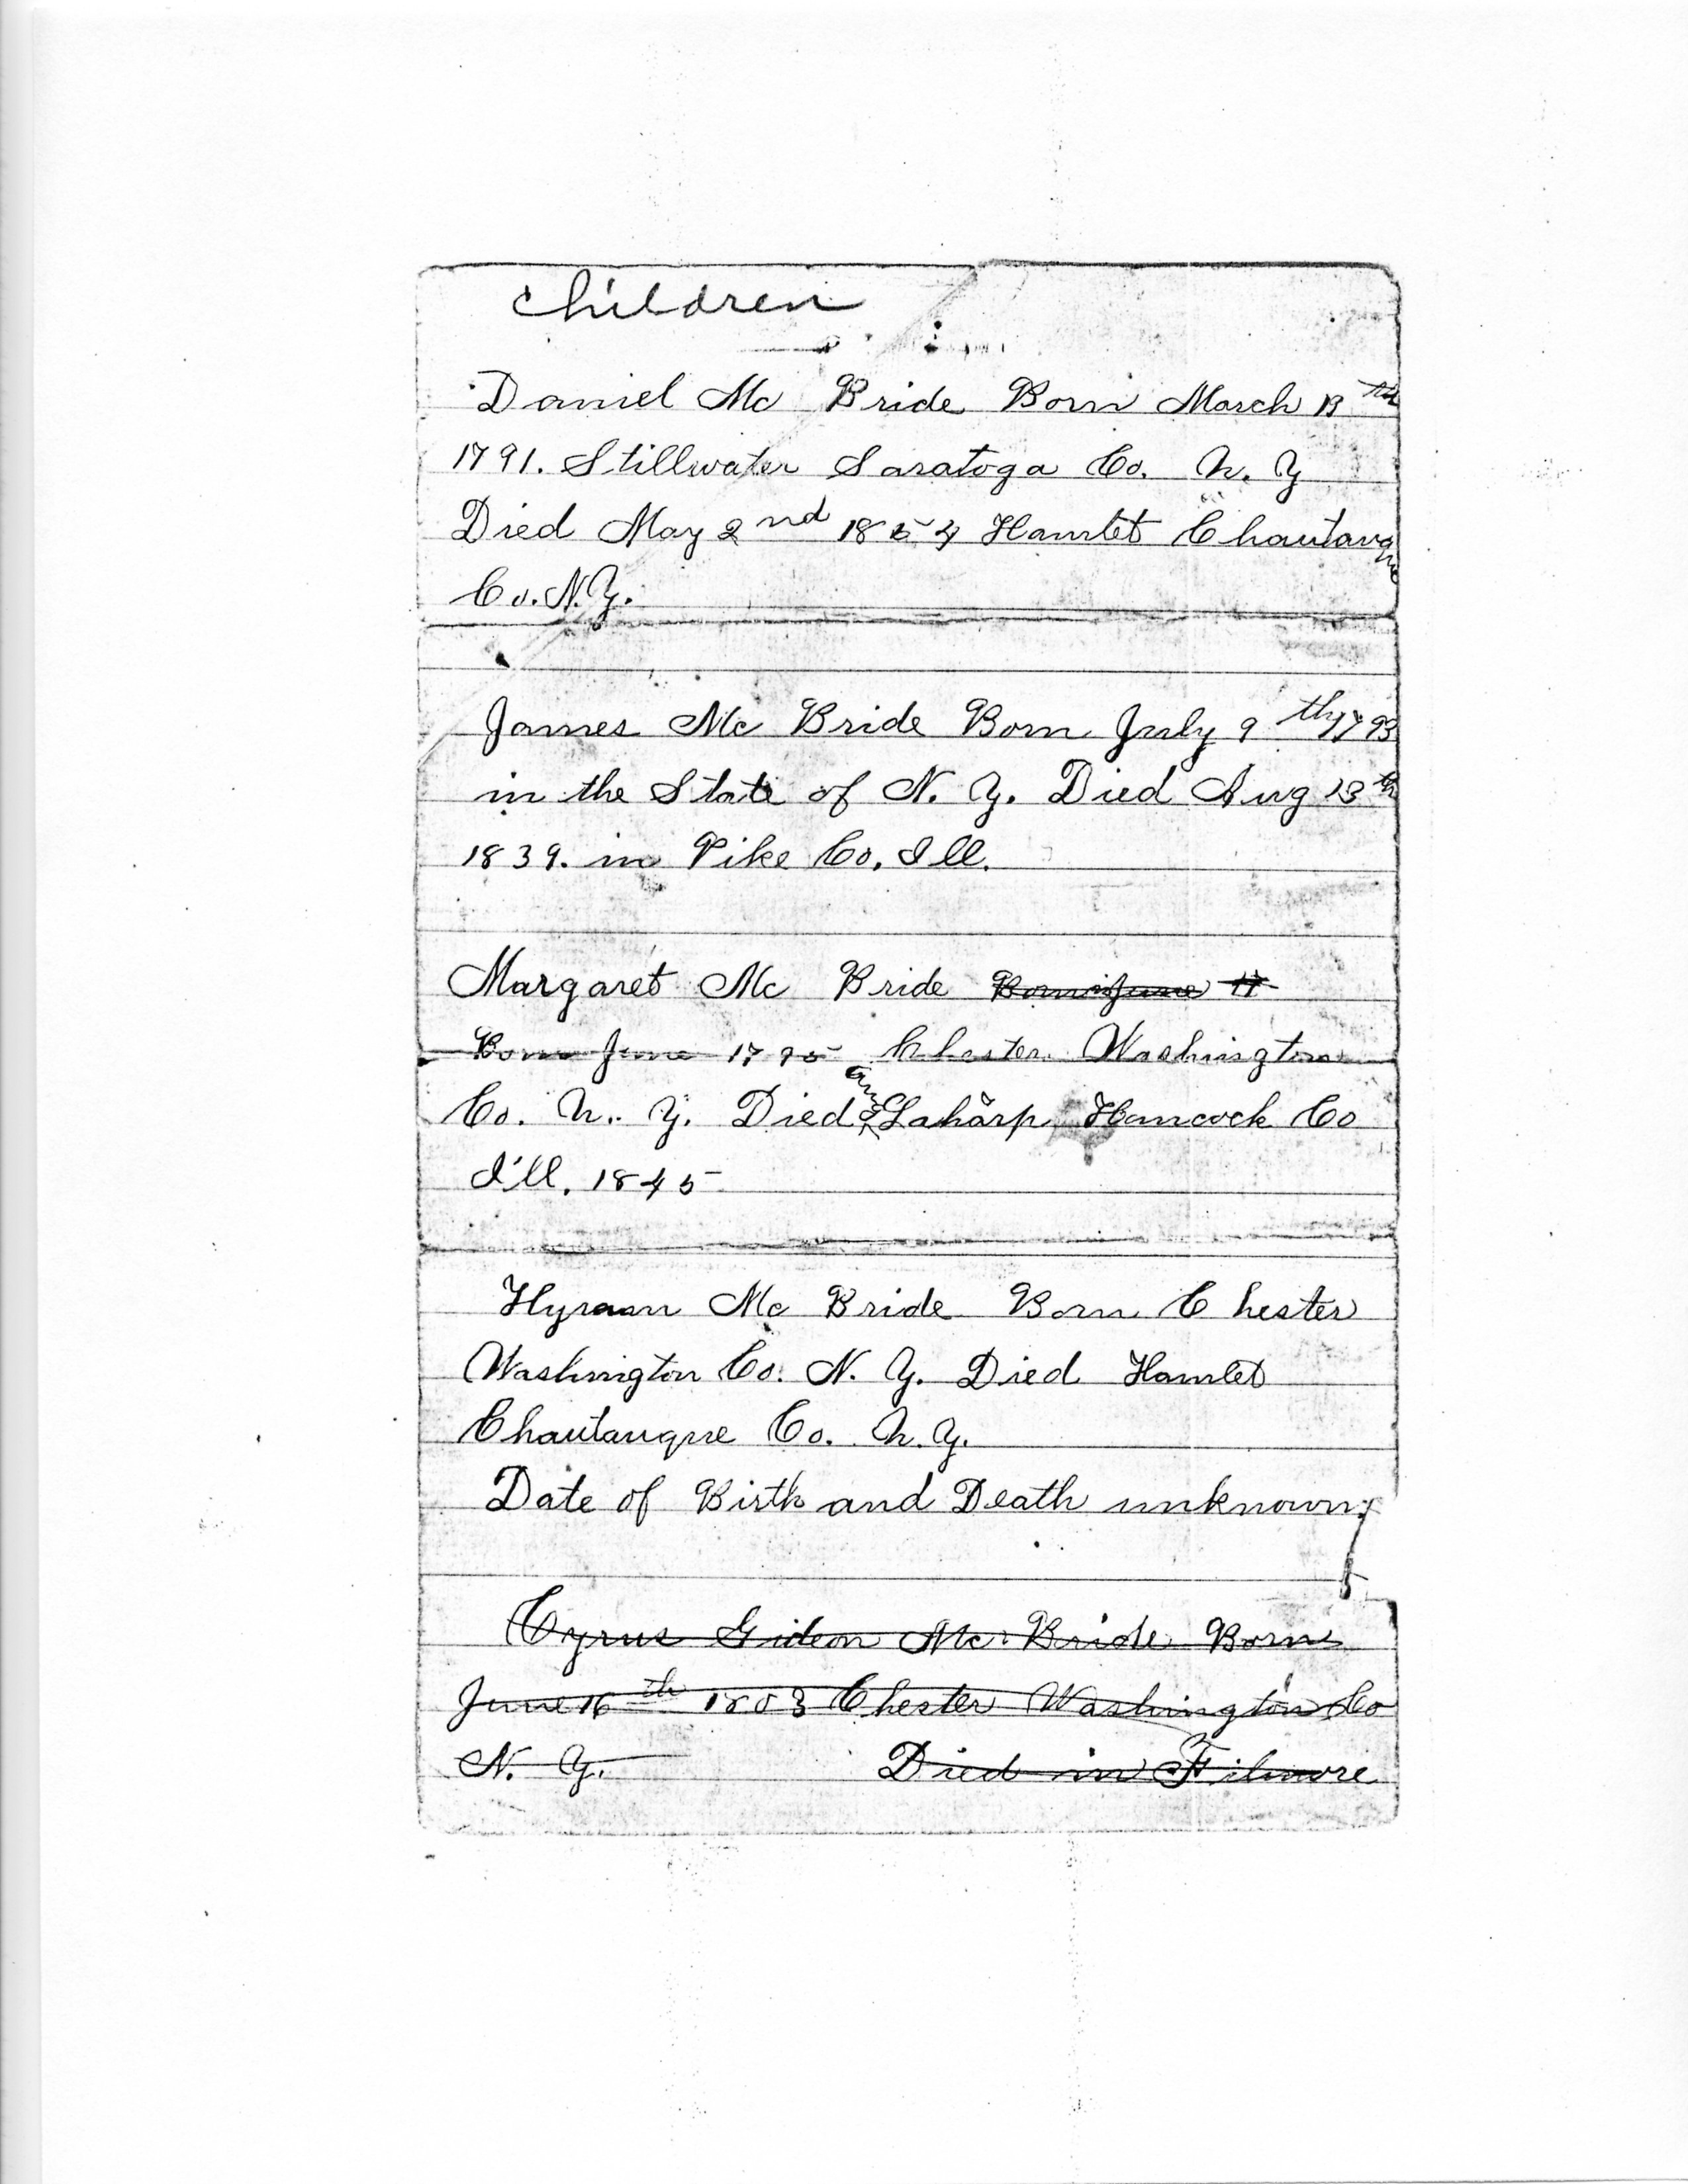 Children
Daniel Mc Bride Born March 13th
1791. Stillwater Saratoga Co. N. Y
Died May 2nd 1854 Hamlet Chautauque
Co. N.Y.
James Mc Bride Born July 9th 1793
in the State of N. Y. Died Aug 13th
1839. in Pike Co. Ill.
Margaret Mc Bride Born June 17
Born June 1795 Chester Washington
Co. N. Y. Died Laharp Hancock Co
I'll. 1845
Hyraam Mc Bride Born Chester
Washington Co. N. Y. Died Hamlet
Chautauque Co. N.Y.
Date of Birth and Death unknown.
Cyrus Gideon Mc Bride Born
June 16th 1803 Chester Washington Co
N. Y. Died in Filmore